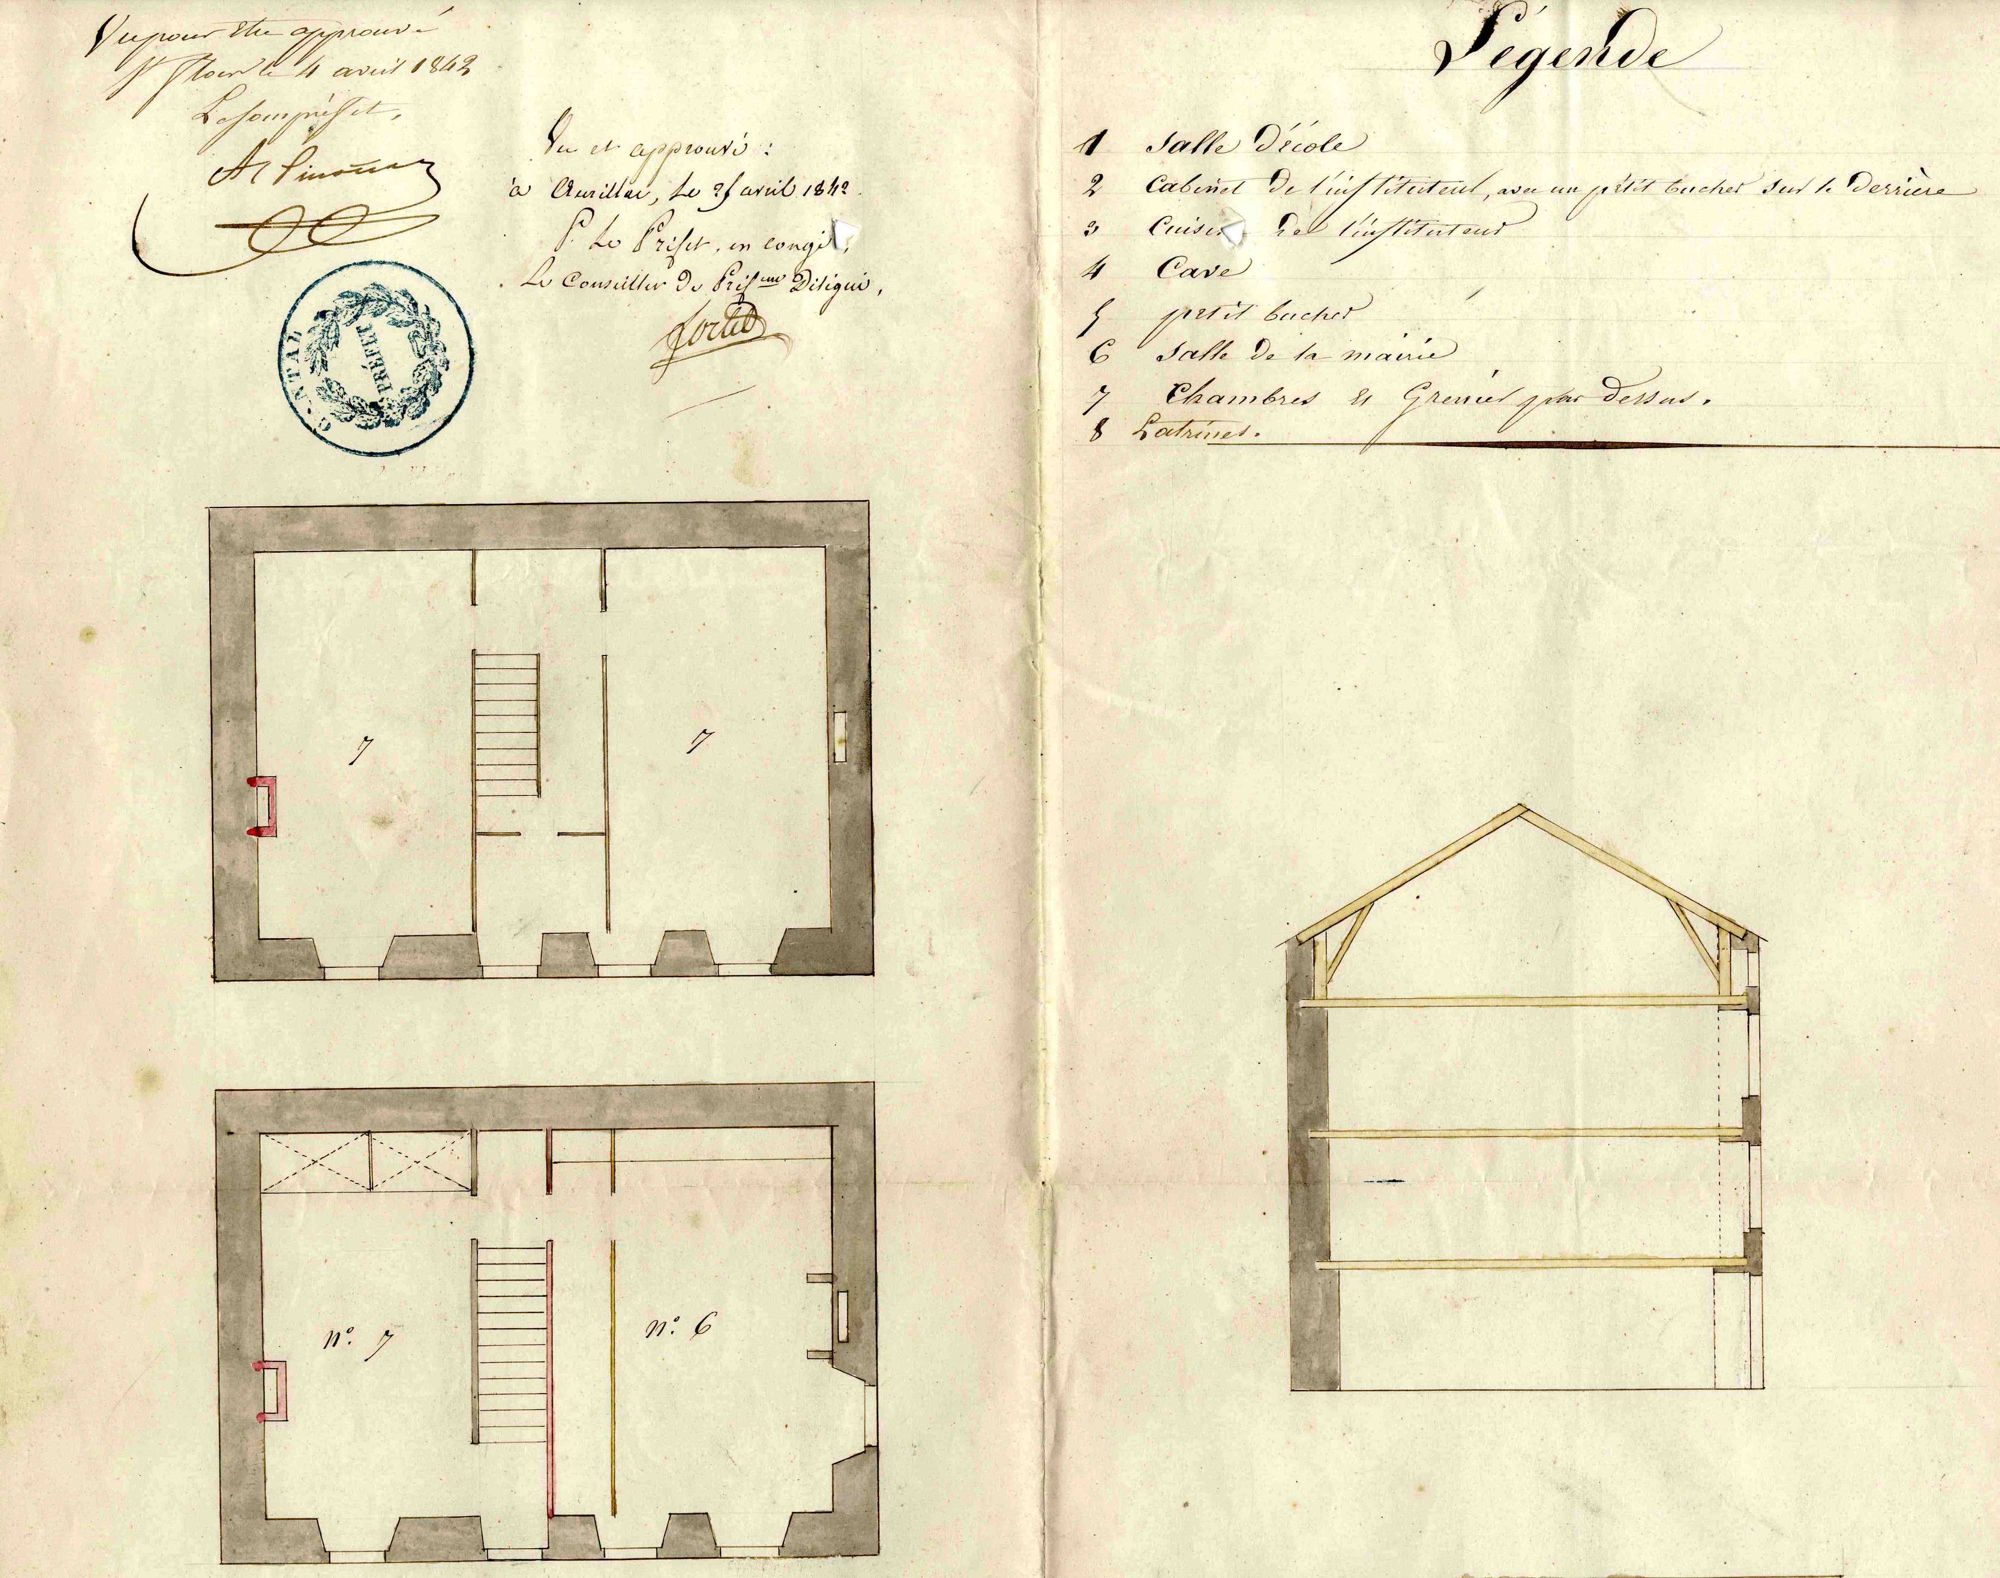 Vu pour être approuvé
St Flour le 4 avril 1842
Le sous préfet,
CANTAL
PRÉFET
Vu et approuvé :
à Aurillac, le 25 avril 1842.
P. Le Préfet, en congé,
Le Conseiller de Préf.ure Délégué,
Légende
1 Salle d'école
2 Cabinet de l'instituteur, avec un petit bucher sur le derrière
3 Cuisine de l'instituteur
4 Cave
5 petit bucher
6 Salle de la mairie
7 Chambres et Grenier par dessus.
8 Latrines.
7
7
n.º 7
n.º 6